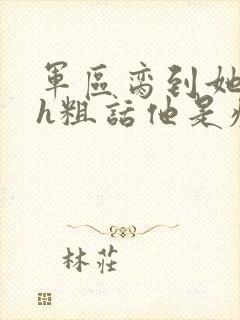 軍區寵到她
h粗話他是
林莊